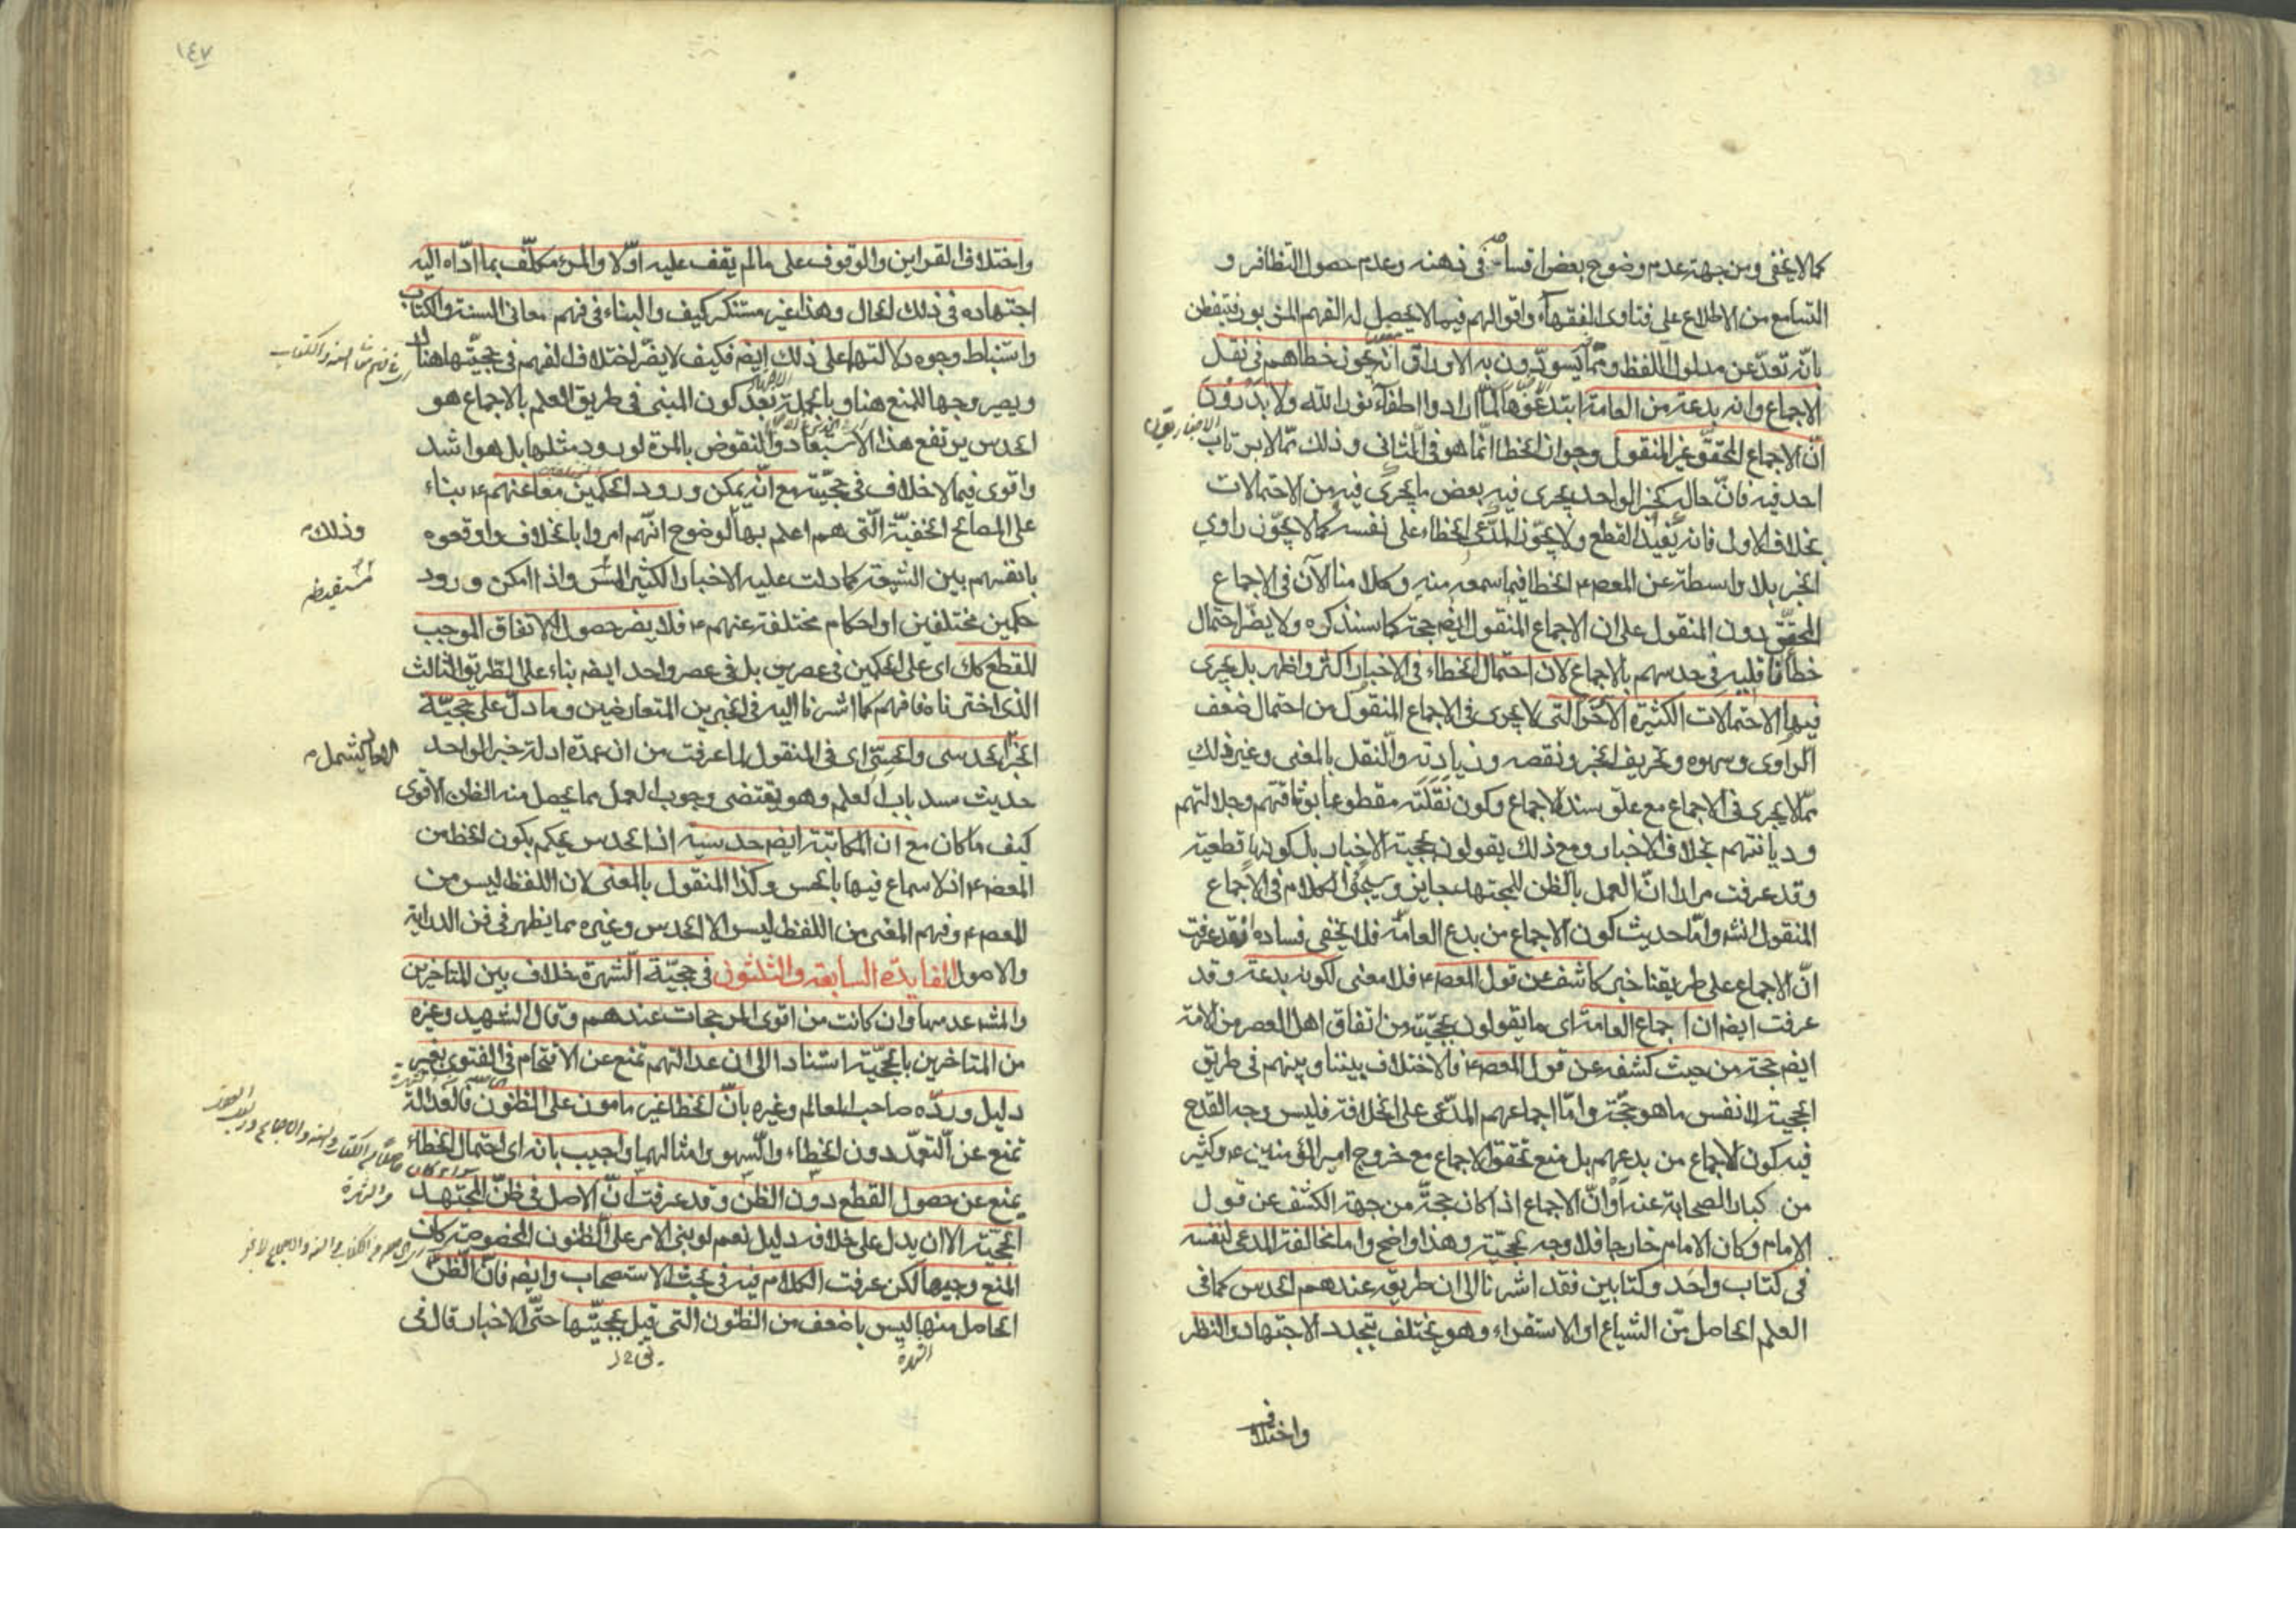 كما لا يخفى ومن جهة عدم وضوح بعض اقسامه في ذهنه وعدم حصول التظافر و
التسامع من الاطلاع على فتاوى الفقهاء واقوالهم فيما لا يحصل له الفهم المزبور فتفطن
بانه تعدّ عن مدلول اللفظ وممّا يسوّدون به الاوراق انه يجوز خطاهم في نقل
الاجماع وانه بدعة من العامة ابتدعوها لمّا ارادوا اطفآء نور الله ولا يدرون
انّ الاجماع المحقّق غير المنقول وجواز الخطا انّما هو في الثاني وذلك ممّا لا يرتاب
احد فيه فانّ حاله كخبر الواحد يجرى فيه بعض ما يجرى فيه من الاحتمالات
بخلاف الاول فانه يفيد القطع ولا يجوّز المدّعى الخطاء على نفسه كما لا يجوّز راوي
الخبر بلا واسطة عن المعصوم ع الخطا فيما سمعه منه وكلامنا الآن في الاجماع
المحقّق دون المنقول على ان الاجماع المنقول ايضم حجة كما سنذكره ولا يضرّ احتمال
خطأ ناقليه في حدسهم بالاجماع لان احتمال الخطاء في الاخبار اكثر واظهر بل يجرى
فيها الاحتمالات الكثيرة الاخر التي لا يجرى في الاجماع المنقول من احتمال ضعف
الراوى وسهوه وتحريف الخبر ونقصه وزيادته والنقل بالمعنى وغير ذلك
ممّا لا يجرى في الاجماع مع علوّ سند الاجماع وكون نقلته مقطوعا بوثاقتهم وجلالتهم
وديانتهم بخلاف الاخبار ومع ذلك يقولون بحجية الاخبار بل كونها قطعية
وقد عرفت مرارا انّ العمل بالظن للمجتهد جايز وسيجئ الكلام في الاجماع
المنقول انشه وامّا حديث كون الاجماع من بدع العامّة فلا يخفى فساده فقد عرفت
انّ الاجماع على طريقنا خبر كاشف عن قول المعصم ع فلا معنى لكونه بدعة وقد
عرفت ايضم ان اجماع العامة اى ما يقولون بحجّيّته من اتفاق اهل العصر من الامة
ايضم حجة من حيث كشفه عن قول المعصم ع فالاختلاف بيننا وبينهم في طريق
الحجية لا نفس ما هو حجّة وامّا اجماعهم المدّعى على الخلافة فليس وجه القدح
فيه كون الاجماع من بدعهم بل منع تحقق الاجماع مع خروج امير المؤمنين ع وكثير
من كبار الصحابة عنه اوْ انّ الاجماع اذا كان حجّة من جهة الكشف عن قول
الامام وكان الامام خارجا فلا وجه لحجيّته وهذا واضح واما مخالفة المدعى لنفسه
في كتاب واحد وكتابين فقد اشرنا الى ان طريقه عندهم الحدس كما في
العلم الحاصل من الشياع او الاستقراء وهو يختلف بتجدد الاجتهاد والنظر
واختلاف
١٤٧
واختلاف القراين والوقوف على ما لم يقف عليه اوّلا والمرء مكلّف بما ادّاه اليه
اجتهاده في ذلك الحال وهذا غير مستنكر كيف والبناء في فهم معاني السنة والكتاب
واستنباط وجوه دلالتها على ذلك ايضم فكيف لا يضرّ اختلاف الفهم في حجيّتها هناك
ويصير وجها للمنع هنا وبالجملة بعد كون المبنى في طريق العلم بالاجماع هو
الحدس يرتفع هذا الاستبعاد والنقوض بالمرة لورود مثلها بل هو اشد
واقوى فيما لا خلاف في حجّيّته مع انّه يمكن ورود الحكمين معا عنهم ع بناء
على المصالح الخفيّة الّتي هم اعلم بها لوضوح انّهم امروا بالخلاف واوقعوه
وذلك
بانفسهم بين الشيعة كما دلت عليه الاخبار الكثيرة واذا امكن ورود
مستفيضه
حكمين مختلفين او احكام مختلفة عنهم ع فلا يضر حصول الاتفاق الموجب
للقطع كك اى على الحكمين في عصرين بل في عصر واحد ايضم بناء على الطريق الثالث
الذى اخترناه فافهم كما اشرنا اليه في الخبرين المتعارضين وما دلّ على حجيّة
الخبر الحدسى والحسّى اى في المنقول لما عرفت من ان عمدة ادلة خبر الواحد
حديث سد باب العلم وهو يقتضى وجوب العمل بما يحصل منه الظن الاقوى
كيف ما كان مع ان المكاتبة ايضم حدسية اذ الحدس يحكم بكون الخط من
المعصم ع اذ لا سماع فيها بالحس وكذا المنقول بالمعنى لان اللفظ ليس من
المعصم ع وفهم المعنى من اللفظ ليس الا الحدس وغيره مما يظهر في فن الدراية
والاصول الفايدة السابعة والثلثون في حجيّة الشهرة خلاف بين المتاخرين
والمشه عدمها وان كانت من اقوى المرجحات عندهم وقال الشهيد وغيره
من المتاخرين بالحجيّة استنادا الى ان عدالتهم تمنع عن الاقتحام في الفتوى بغير
دليل وردّه صاحب المعالم وغيره بانّ الخطا غير مامون على الظنون فالعدالة
تمنع عن التعمّد دون الخطاء والسّهو وامثالهما واجيب بانه اى احتمال الخطاء
يمنع عن حصول القطع دون الظن وقد عرفت انّ الاصل في ظنّ المجتهد
والشهرة
الحجيّة الا ان يدل على خلافه دليل نعم لو بنى الامر على الظنون المخصوصة كان
المنع وجيها لكن عرفت الكلام فيه في بحث الاستصحاب وايضم فانّ الظنّ
الحاصل منها ليس باضعف من الظنون التي قيل بحجيّتها حتّى الاخبار قال في
الشهرة